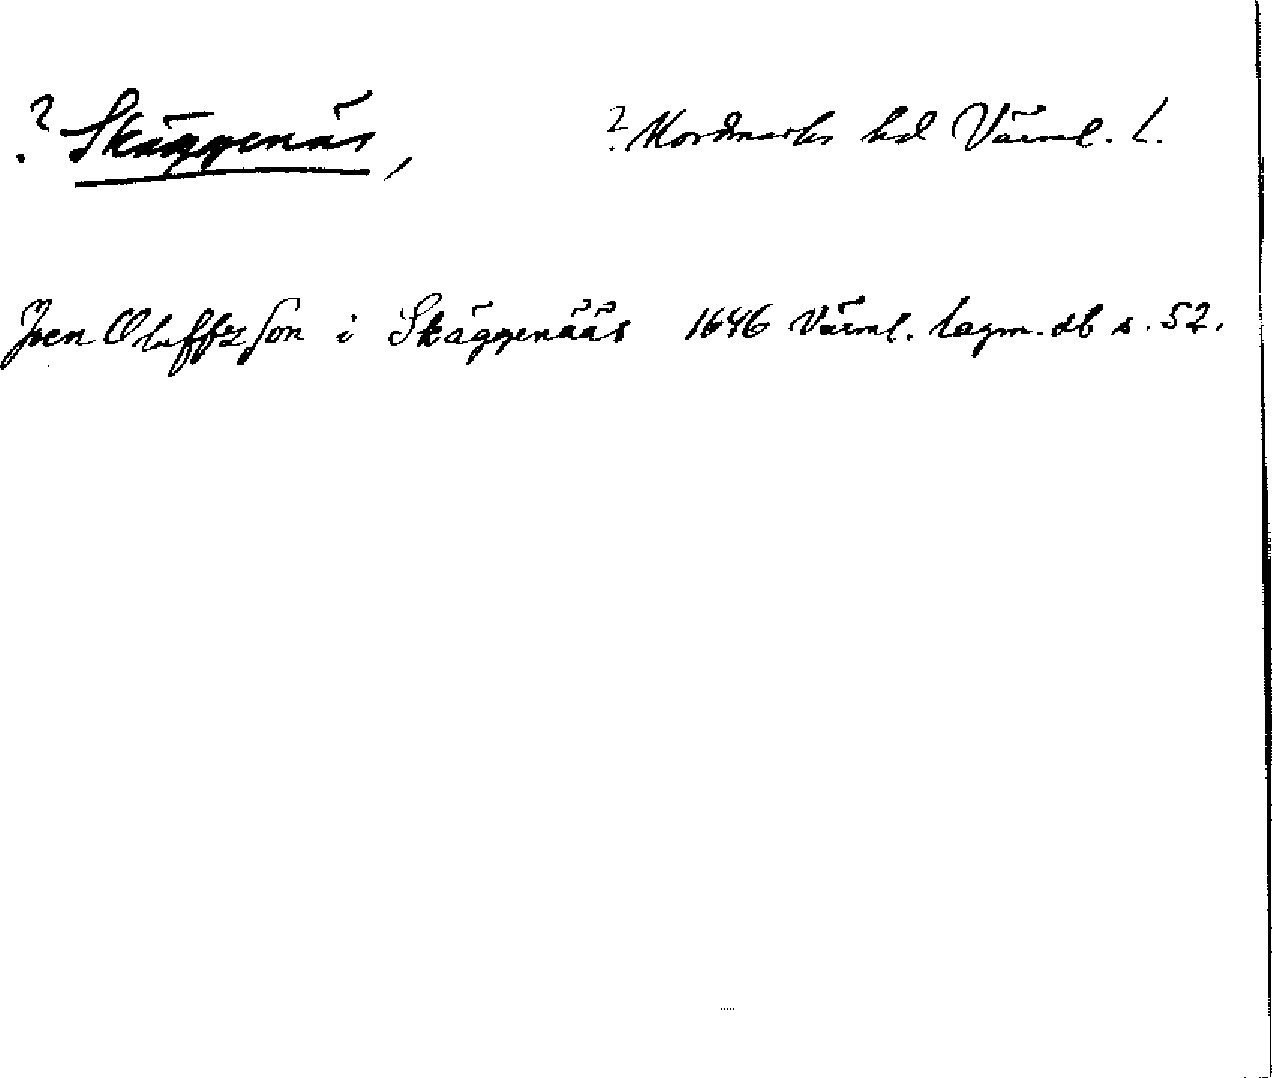 ? Skäggenäs, ? Nordmarks hd Värml. l.
Joen Oluffzson i Skäggenääs 1646 Värml. lagm. db s. 52.